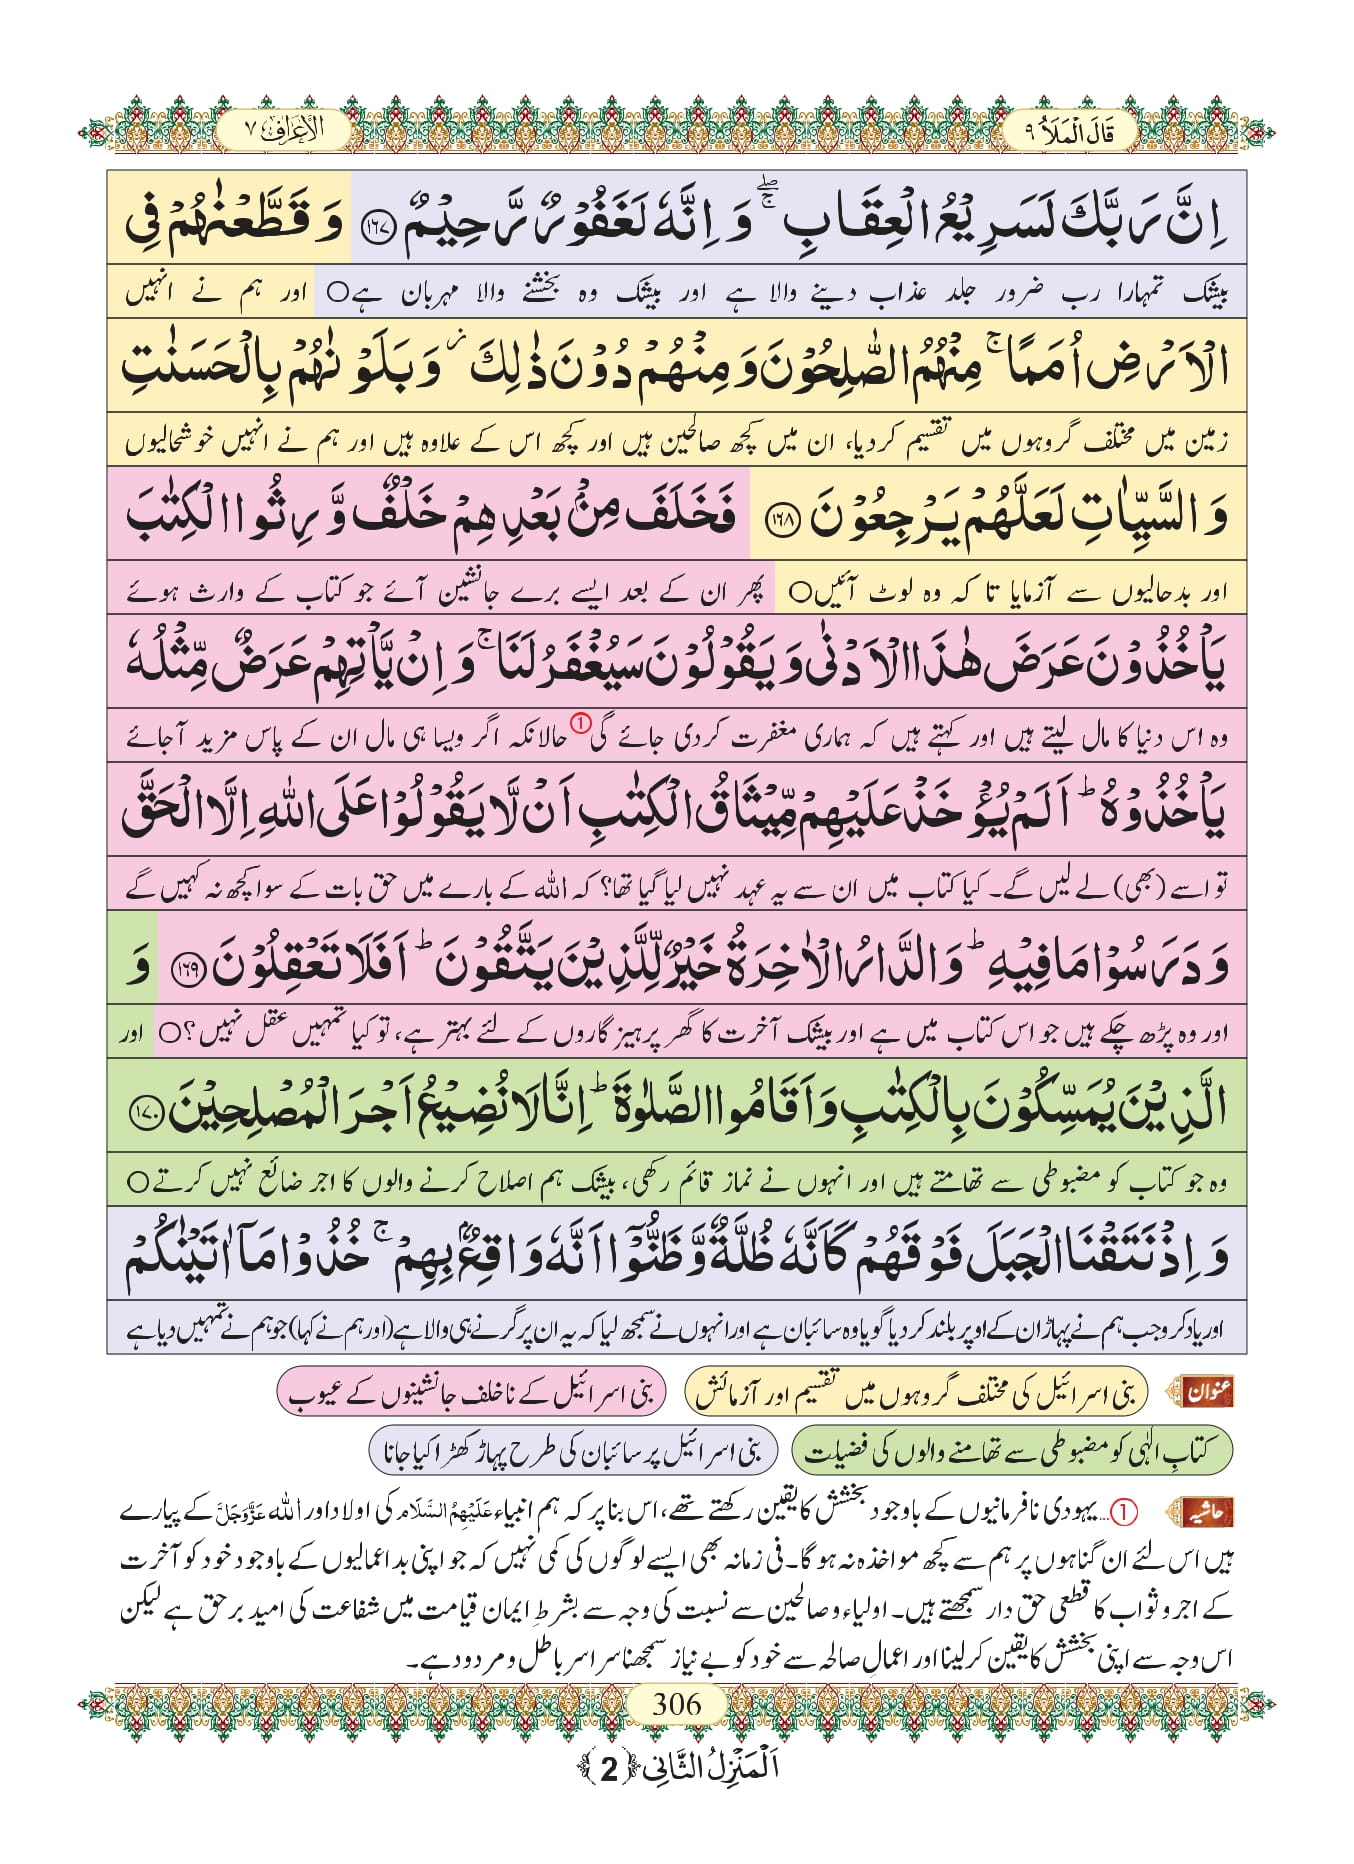 قَالَ الْمَلَاُ ٩
الْاَعْرَاف ٧
اِنَّ رَبَّكَ لَسَرِيْعُ الْعِقَابِ ۚۖ وَ اِنَّهٗ لَغَفُوْرٌ رَّحِيْمٌ ﴿١٦٧﴾ وَ قَطَّعْنٰهُمْ فِی
بیشک تمہارا رب ضرور جلد عذاب دینے والا ہے اور بیشک وہ بخشنے والا مہربان ہے○ اور ہم نے انہیں
الْاَرْضِ اُمَمًا ۚ مِنْهُمُ الصّٰلِحُوْنَ وَ مِنْهُمْ دُوْنَ ذٰلِكَ ۫ وَ بَلَوْنٰهُمْ بِالْحَسَنٰتِ
زمین میں مختلف گروہوں میں تقسیم کردیا، ان میں کچھ صالحین ہیں اور کچھ اس کے علاوہ ہیں اور ہم نے انہیں خوشحالیوں
وَ السَّیِّاٰتِ لَعَلَّهُمْ یَرْجِعُوْنَ ﴿١٦٨﴾ فَخَلَفَ مِنْۢ بَعْدِهِمْ خَلْفٌ وَّرِثُوا الْكِتٰبَ
اور بدحالیوں سے آزمایا تا کہ وہ لوٹ آئیں○ پھر ان کے بعد ایسے برے جانشین آئے جو کتاب کے وارث ہوئے
یَاْخُذُوْنَ عَرَضَ هٰذَا الْاَدْنٰى وَ یَقُوْلُوْنَ سَیُغْفَرُ لَنَا ۚ وَ اِنْ یَّاْتِهِمْ عَرَضٌ مِّثْلُهٗ
وہ اس دنیا کا مال لیتے ہیں اور کہتے ہیں کہ ہماری مغفرت کردی جائے گی① حالانکہ اگر ویسا ہی مال ان کے پاس مزید آجائے
یَاْخُذُوْهُ ؕ اَلَمْ یُؤْخَذْ عَلَیْهِمْ مِّیْثَاقُ الْكِتٰبِ اَنْ لَّا یَقُوْلُوْا عَلَى اللّٰهِ اِلَّا الْحَقَّ
تو اسے (بھی) لے لیں گے۔ کیا کتاب میں ان سے یہ عہد نہیں لیا گیا تھا؟ کہ اللہ کے بارے میں حق بات کے سوا کچھ نہ کہیں گے
وَ دَرَسُوْا مَا فِیْهِ ؕ وَ الدَّارُ الْاٰخِرَةُ خَیْرٌ لِّلَّذِیْنَ یَتَّقُوْنَ ؕ اَفَلَا تَعْقِلُوْنَ ﴿١٦٩﴾ وَ
اور وہ پڑھ چکے ہیں جو اس کتاب میں ہے اور بیشک آخرت کا گھر پرہیز گاروں کے لئے بہتر ہے، تو کیا تمہیں عقل نہیں؟○ اور
الَّذِیْنَ یُمَسِّكُوْنَ بِالْكِتٰبِ وَ اَقَامُوا الصَّلٰوةَ ؕ اِنَّا لَا نُضِیْعُ اَجْرَ الْمُصْلِحِیْنَ ﴿١٧٠﴾
وہ جو کتاب کو مضبوطی سے تھامتے ہیں اور انہوں نے نماز قائم رکھی، بیشک ہم اصلاح کرنے والوں کا اجر ضائع نہیں کرتے○
وَ اِذْ نَتَقْنَا الْجَبَلَ فَوْقَهُمْ كَاَنَّهٗ ظُلَّةٌ وَّ ظَنُّوْۤا اَنَّهٗ وَاقِعٌۢ بِهِمْ ۚ خُذُوْا مَاۤ اٰتَیْنٰكُمْ
اور یاد کرو جب ہم نے پہاڑ ان کے اوپر بلند کر دیا گویا وہ سائبان ہے اور انہوں نے سمجھ لیا کہ یہ ان پر گرنے ہی والا ہے (اور ہم نے کہا) جو ہم نے تمہیں دیا ہے
عنوان بنی اسرائیل کی مختلف گروہوں میں تقسیم اور آزمائش بنی اسرائیل کے ناخلف جانشینوں کے عیوب
کتابِ الٰہی کو مضبوطی سے تھامنے والوں کی فضیلت بنی اسرائیل پر سائبان کی طرح پہاڑ کھڑا کیا جانا
حاشیہ ①...یہودی نافرمانیوں کے باوجود بخشش کا یقین رکھتے تھے، اس بنا پر کہ ہم انبیاء عَلَیْہِمُ السَّلَام کی اولاد اور اللہ عَزَّوَجَلَّ کے پیارے
ہیں اس لئے ان گناہوں پر ہم سے کچھ مواخذہ نہ ہو گا۔ فی زمانہ بھی ایسے لوگوں کی کمی نہیں کہ جو اپنی بداعمالیوں کے باوجود خود کو آخرت
کے اجر و ثواب کا قطعی حق دار سمجھتے ہیں۔ اولیاء و صالحین سے نسبت کی وجہ سے بشرطِ ایمان قیامت میں شفاعت کی امید برحق ہے لیکن
اس وجہ سے اپنی بخشش کا یقین کر لینا اور اعمالِ صالحہ سے خود کو بے نیاز سمجھنا سراسر باطل و مردود ہے۔
306
اَلْمَنْزِلُ الثَّانِی ﴿2﴾